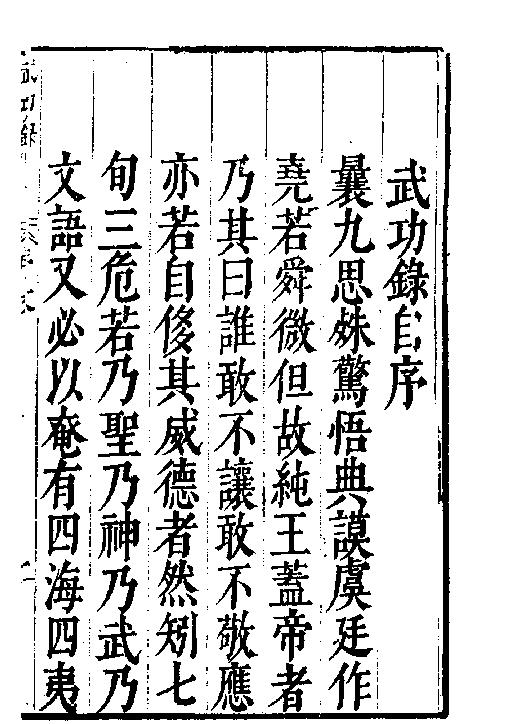 武功錄自序
曩九思姝驚悟典謨虞廷作
堯若舜微但故純王蓋帝者
乃其曰誰敢不讓敢不敬應
亦若自侈其威德者然矧七
旬三危若乃聖乃神乃武乃
文語又必以奄有四海四夷
武功錄